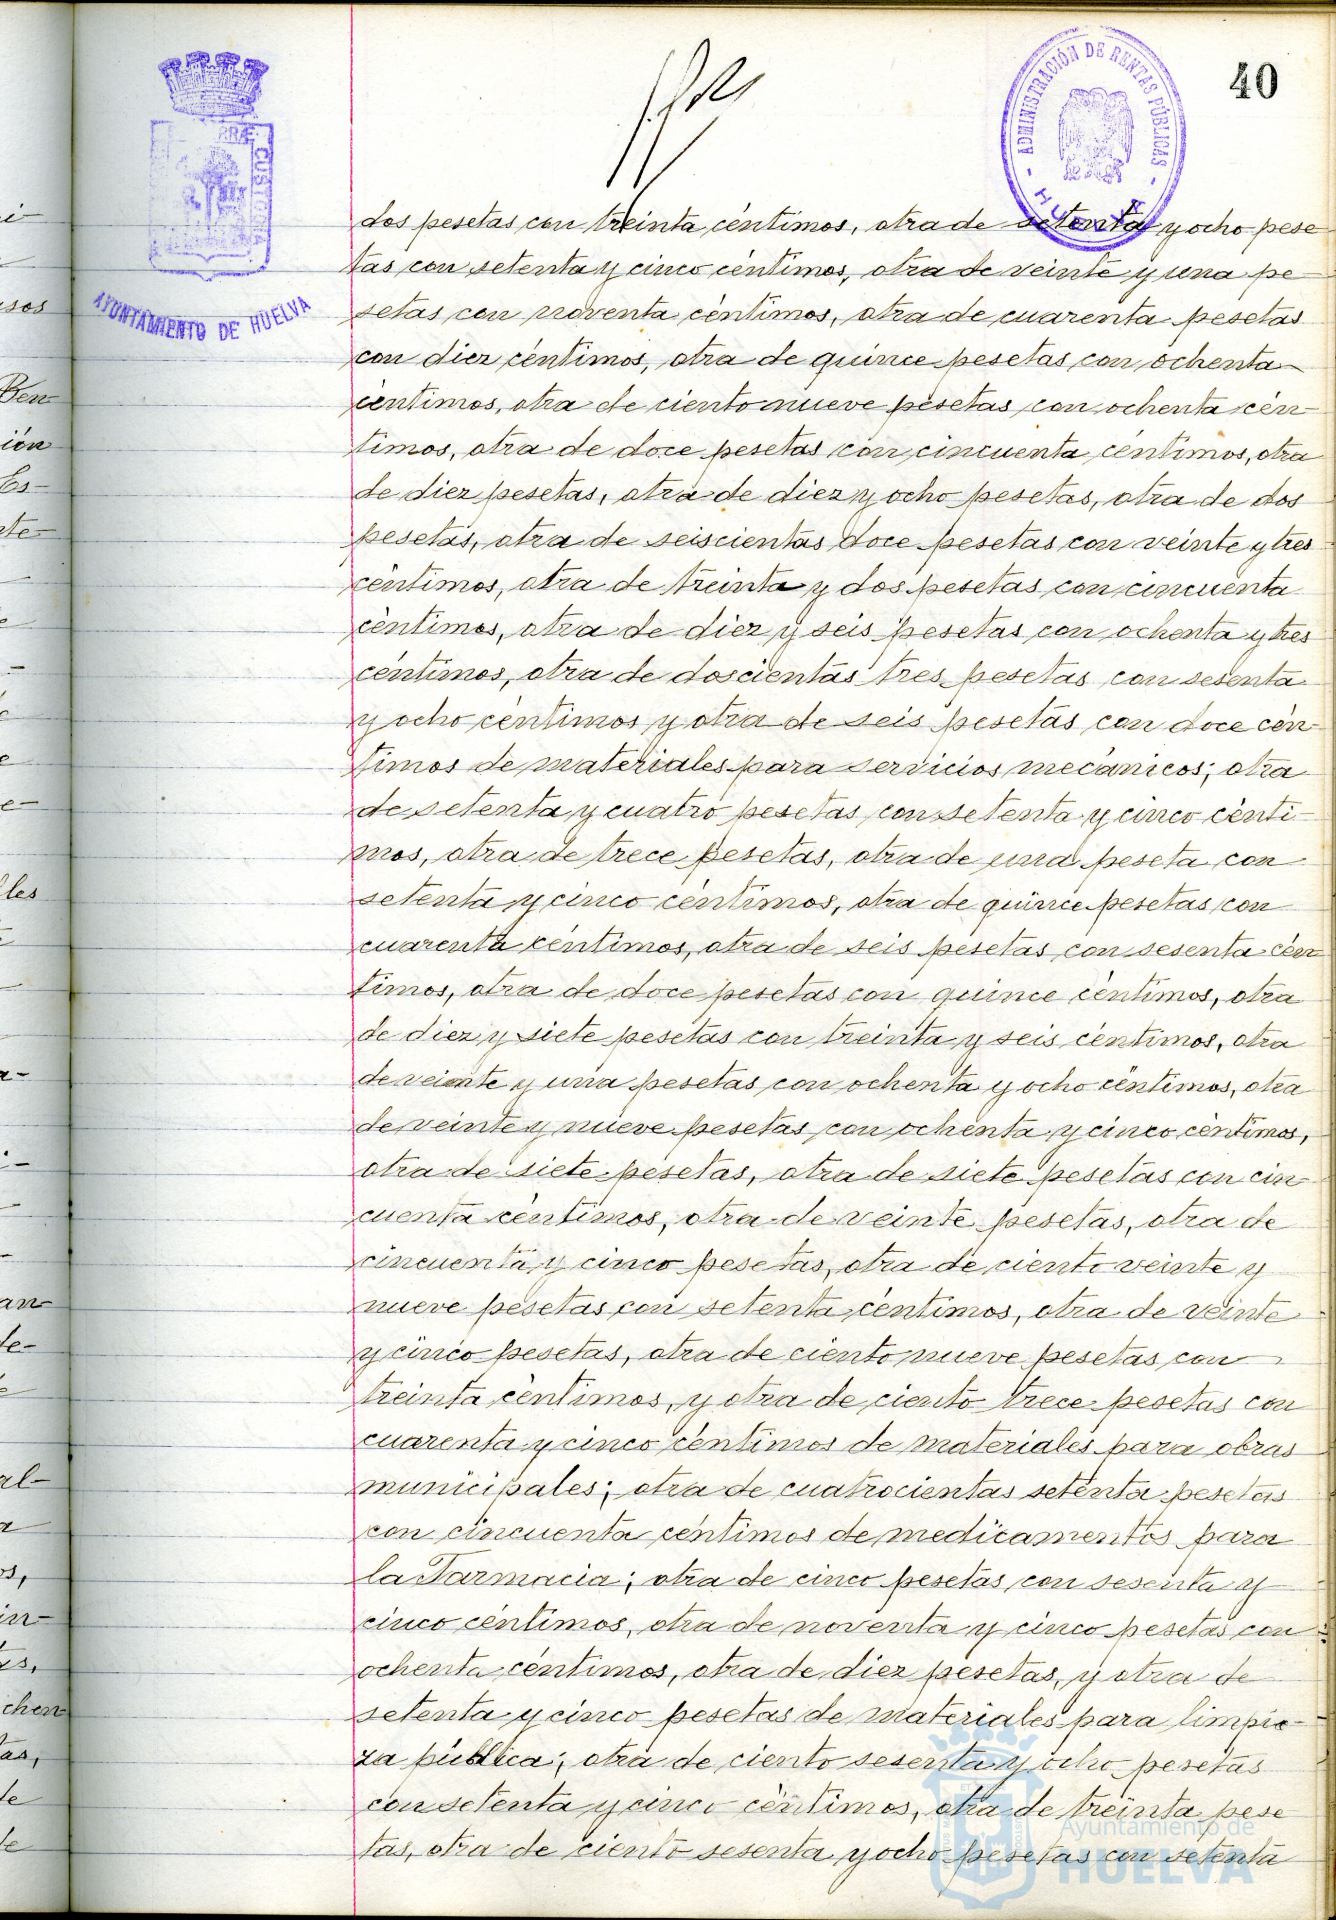 40
ADMINISTRACIÓN DE RENTAS PÚBLICAS
HUELVA
CUSTODIA
AYUNTAMIENTO DE HUELVA
dos pesetas con treinta céntimos, otra de setenta y ocho pese-
tas con setenta y cinco céntimos, otra de veinte y una pe-
setas con noventa céntimos, otra de cuarenta pesetas
con diez céntimos, otra de quince pesetas con ochenta
céntimos, otra de ciento nueve pesetas con ochenta cén-
timos, otra de doce pesetas con cincuenta céntimos, otra
de diez pesetas, otra de diez y ocho pesetas, otra de dos
pesetas, otra de seiscientas doce pesetas con veinte y tres
céntimos, otra de treinta y dos pesetas con cincuenta
céntimos, otra de diez y seis pesetas con ochenta y tres
céntimos, otra de doscientas tres pesetas con sesenta
y ocho céntimos y otra de seis pesetas con doce cén-
timos de materiales para servicios mecánicos; otra
de setenta y cuatro pesetas con setenta y cinco cénti-
mos, otra de trece pesetas, otra de una peseta con
setenta y cinco céntimos, otra de quince pesetas con
cuarenta céntimos, otra de seis pesetas con sesenta cén
timos, otra de doce pesetas con quince céntimos, otra
de diez y siete pesetas con treinta y seis céntimos, otra
de veinte y una pesetas con ochenta y ocho céntimos, otra
de veinte y nueve pesetas con ochenta y cinco céntimos,
otra de siete pesetas, otra de siete pesetas con cin-
cuenta céntimos, otra de veinte pesetas, otra de
cincuenta y cinco pesetas, otra de ciento veinte y
nueve pesetas con setenta céntimos, otra de veinte
y cinco pesetas, otra de ciento nueve pesetas con
treinta céntimos, y otra de ciento trece pesetas con
cuarenta y cinco céntimos de materiales para obras
municipales; otra de cuatrocientas setenta pesetas
con cincuenta céntimos de medicamentos para
la Farmacia; otra de cinco pesetas con sesenta y
cinco céntimos, otra de noventa y cinco pesetas con
ochenta céntimos, otra de diez pesetas, y otra de
setenta y cinco pesetas de materiales para limpie-
za pública; otra de ciento sesenta y ocho pesetas
con setenta y cinco céntimos, otra de treinta pese
tas, otra de ciento sesenta y ocho pesetas con setenta
Ayuntamiento de
HUELVA